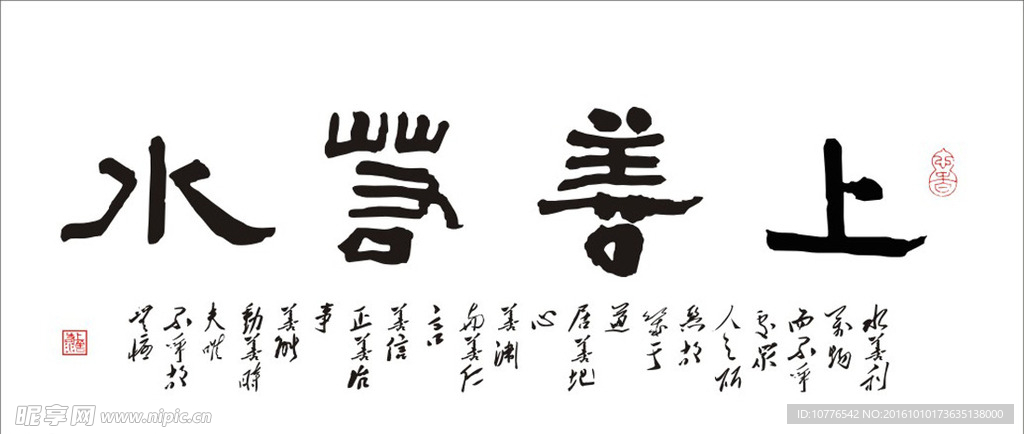 上善若水
水善利
萬物
而不爭
處眾
人之所
惡故
幾于
道
居善地
心
善淵
與善仁
言
善信
正善治
事
善能
動善時
夫唯
不爭故
昵享网 www.nipic.cn
ID:10776542 NO:20161010173635138000